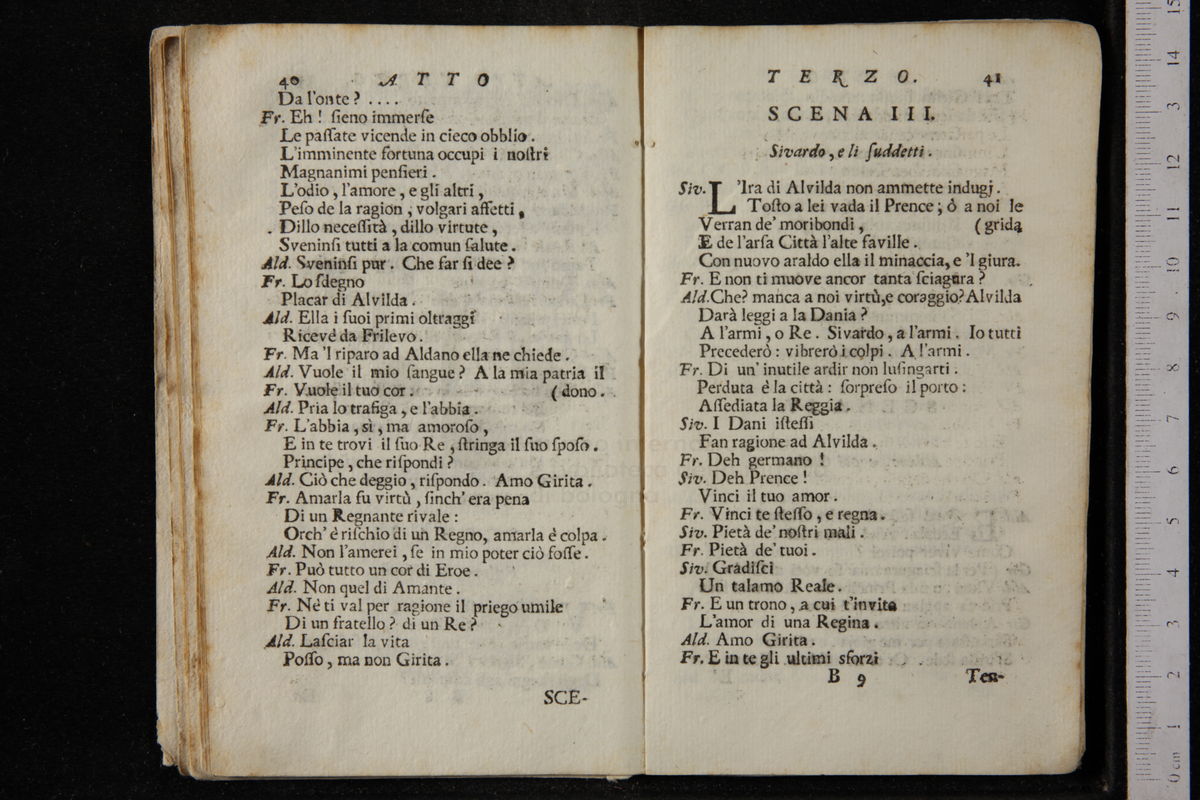 40 ATTO
Da l'onte ? . . . .
Fr. Eh ! ſieno immerſe
Le paſſate vicende in cieco obblio .
L'imminente fortuna occupi i noſtri
Magnanimi penſieri .
L'odio , l'amore , e gli altri ,
Peſo de la ragion , volgari affetti ,
. Dillo neceſſità , dillo virtute ,
Sveninſi tutti a la comun ſalute .
Ald. Sveninſi pur . Che far ſi dee ?
Fr. Lo ſdegno
Placar di Alvilda .
Ald. Ella i ſuoi primi oltraggi
Ricevè da Frilevo .
Fr. Ma 'l riparo ad Aldano ella ne chiede .
Ald. Vuole il mio ſangue ? A la mia patria il
Fr. Vuole il tuo cor . ( dono .
Ald. Pria lo trafiga , e l'abbia .
Fr. L'abbia , sì , ma amoroſo ,
E in te trovi il ſuo Re , ſtringa il ſuo ſpoſo .
Principe , che riſpondi ?
Ald. Ciò che deggio , riſpondo . Amo Girita .
Fr. Amarla fu virtù , ſinch' era pena
Di un Regnante rivale :
Orch' è riſchio di un Regno, amarla è colpa .
Ald. Non l'amerei , ſe in mio poter ciò foſſe .
Fr. Può tutto un cor di Eroe .
Ald. Non quel di Amante .
Fr. Nè ti val per ragione il priego umile
Di un fratello ? di un Re ?
Ald. Laſciar la vita
Poſſo , ma non Girita .
SCE-
TERZO. 41
SCENA III.
Sivardo , e li ſuddetti .
Siv. L'Ira di Alvilda non ammette indugj .
Toſto a lei vada il Prence ; ò a noi le
Verran de' moribondi , ( grida
E de l'arſa Città l'alte faville .
Con nuovo araldo ella il minaccia, e 'l giura.
Fr. E non ti muove ancor tanta ſciagura ?
Ald. Che? manca a noi virtù,e coraggio? Alvilda
Darà leggi a la Dania ?
A l'armi , o Re . Sivardo , a l'armi . Io tutti
Precederò : vibrerò i colpi . A l'armi .
Fr. Di un' inutile ardir non luſingarti .
Perduta è la città : ſorpreſo il porto :
Aſſediata la Reggia .
Siv. I Dani iſteſſi
Fan ragione ad Alvilda .
Fr. Deh germano !
Siv. Deh Prence !
Vinci il tuo amor .
Fr. Vinci te ſteſſo , e regna .
Siv. Pietà de' noſtri mali .
Fr. Pietà de' tuoi .
Siv. Gradiſci
Un talamo Reale .
Fr. E un trono , a cui t'invita
L'amor di una Regina .
Ald. Amo Girita .
Fr. E in te gli ultimi sforzi
B 9 Ten-